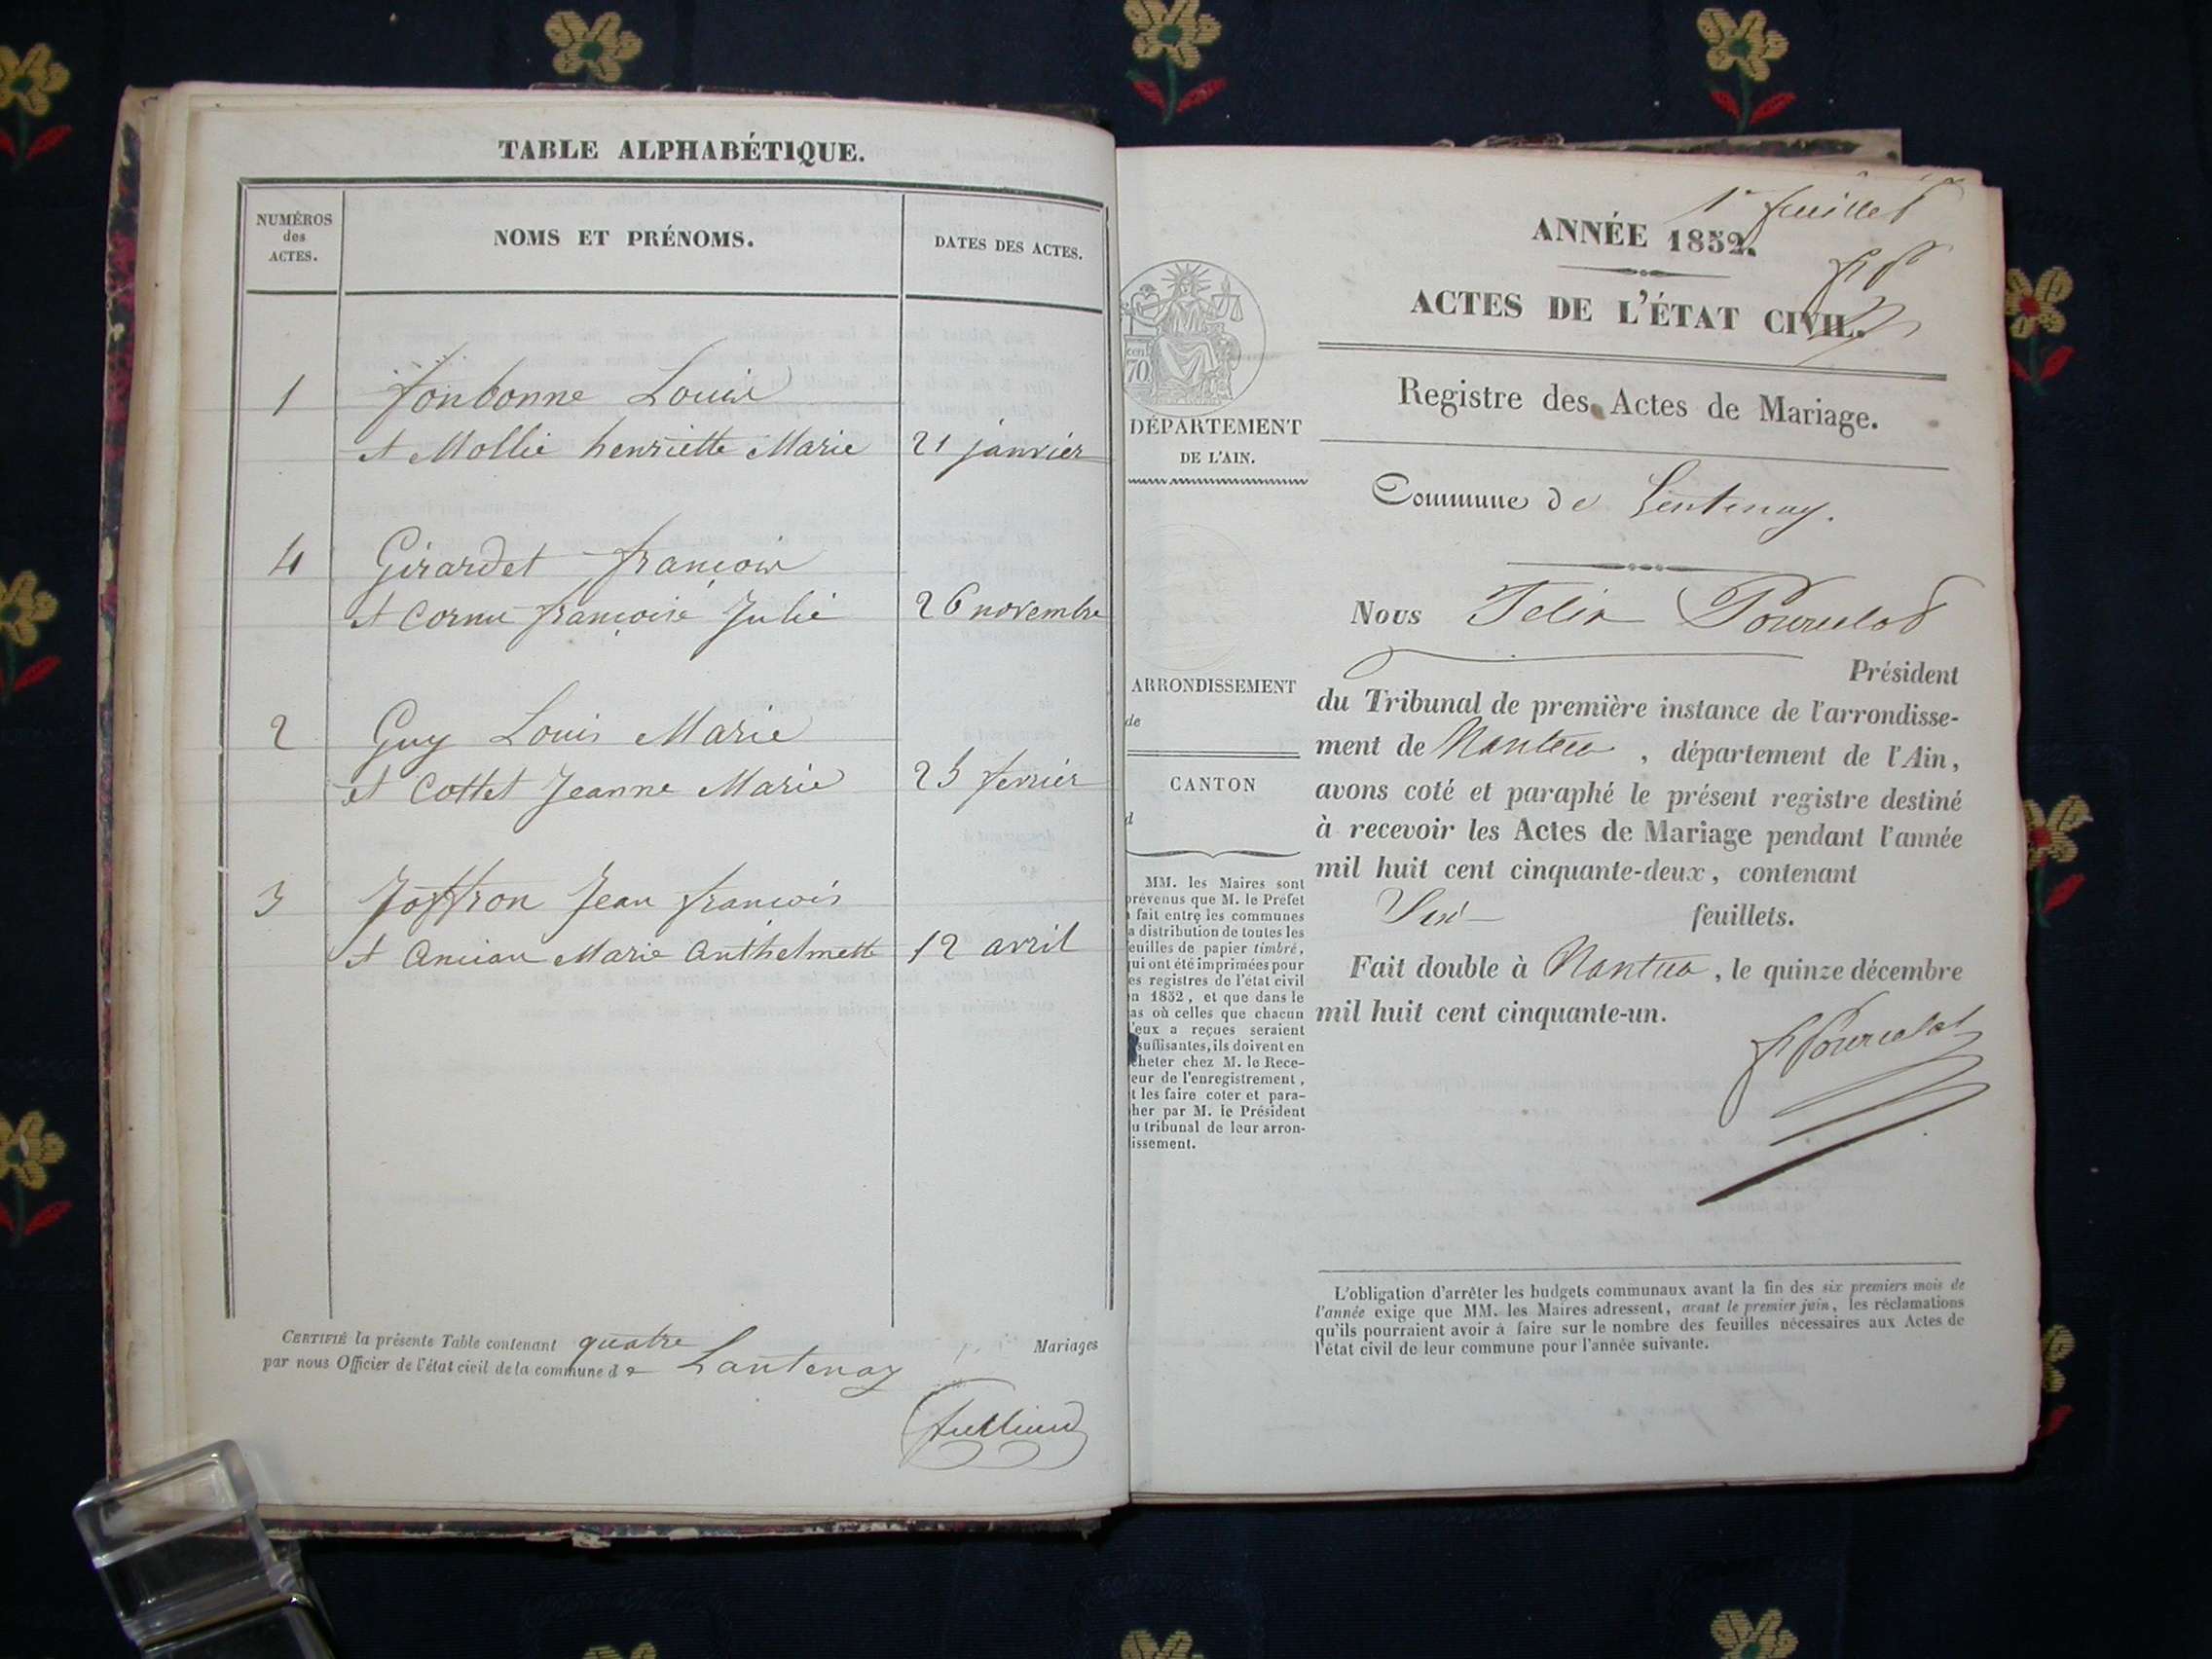 TABLE ALPHABÉTIQUE.
NUMÉROS des ACTES.
NOMS ET PRÉNOMS.
DATES DES ACTES.
1 Fonbonne Louis
et Mollie henriette Marie 21 janvier
4 Girardet françois
et Cornu françoise Julie 26 novembre
2 Guy Louis Marie
et Cottet Jeanne Marie 25 fevrier
3 Joffron Jean françois
et Ancian Marie Anthelmette 12 avril
CERTIFIÉ la présente Table contenant quatre Mariages
par nous Officier de l'état civil de la commune de Lantenay
1er feuillet
ANNÉE 1852.
ACTES DE L'ÉTAT CIVIL.
Registre des Actes de Mariage.
Commune de Lentenay.
Nous Felix Pourcelot
Président
du Tribunal de première instance de l'arrondisse-
ment de Nantua, département de l'Ain,
avons coté et paraphé le présent registre destiné
à recevoir les Actes de Mariage pendant l'année
mil huit cent cinquante-deux, contenant
Six feuillets.
Fait double à Nantua, le quinze décembre
mil huit cent cinquante-un.
F Pourcelot
cent. 70
DÉPARTEMENT
DE L'AIN.
ARRONDISSEMENT
de
CANTON
d
MM. les Maires sont
prévenus que M. le Préfet
a fait entre les communes
la distribution de toutes les
feuilles de papier timbré,
qui ont été imprimées pour
les registres de l'état civil
en 1852, et que dans le
cas où celles que chacun
d'eux a reçues seraient
suffisantes, ils doivent en
acheter chez M. le Rece-
veur de l'enregistrement,
et les faire coter et para-
pher par M. le Président
du tribunal de leur arron-
dissement.
L'obligation d'arrêter les budgets communaux avant la fin des six premiers mois de
l'année exige que MM. les Maires adressent, avant le premier juin, les réclamations
qu'ils pourraient avoir à faire sur le nombre des feuilles nécessaires aux Actes de
l'état civil de leur commune pour l'année suivante.